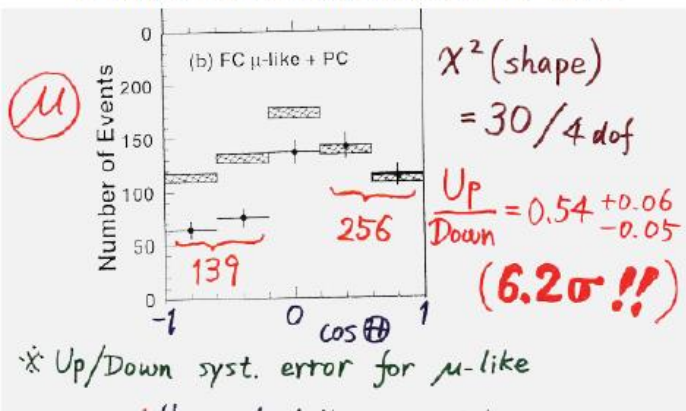 0
(b) FC μ-like + PC
μ
Number of Events
200
150
100
50
0
139
256
-1
0
1
cosΘ
χ² (shape)
= 30 / 4 dof
Up/Down = 0.54 +0.06 -0.05
(6.2σ!!)
※ Up/Down syst. error for μ-like